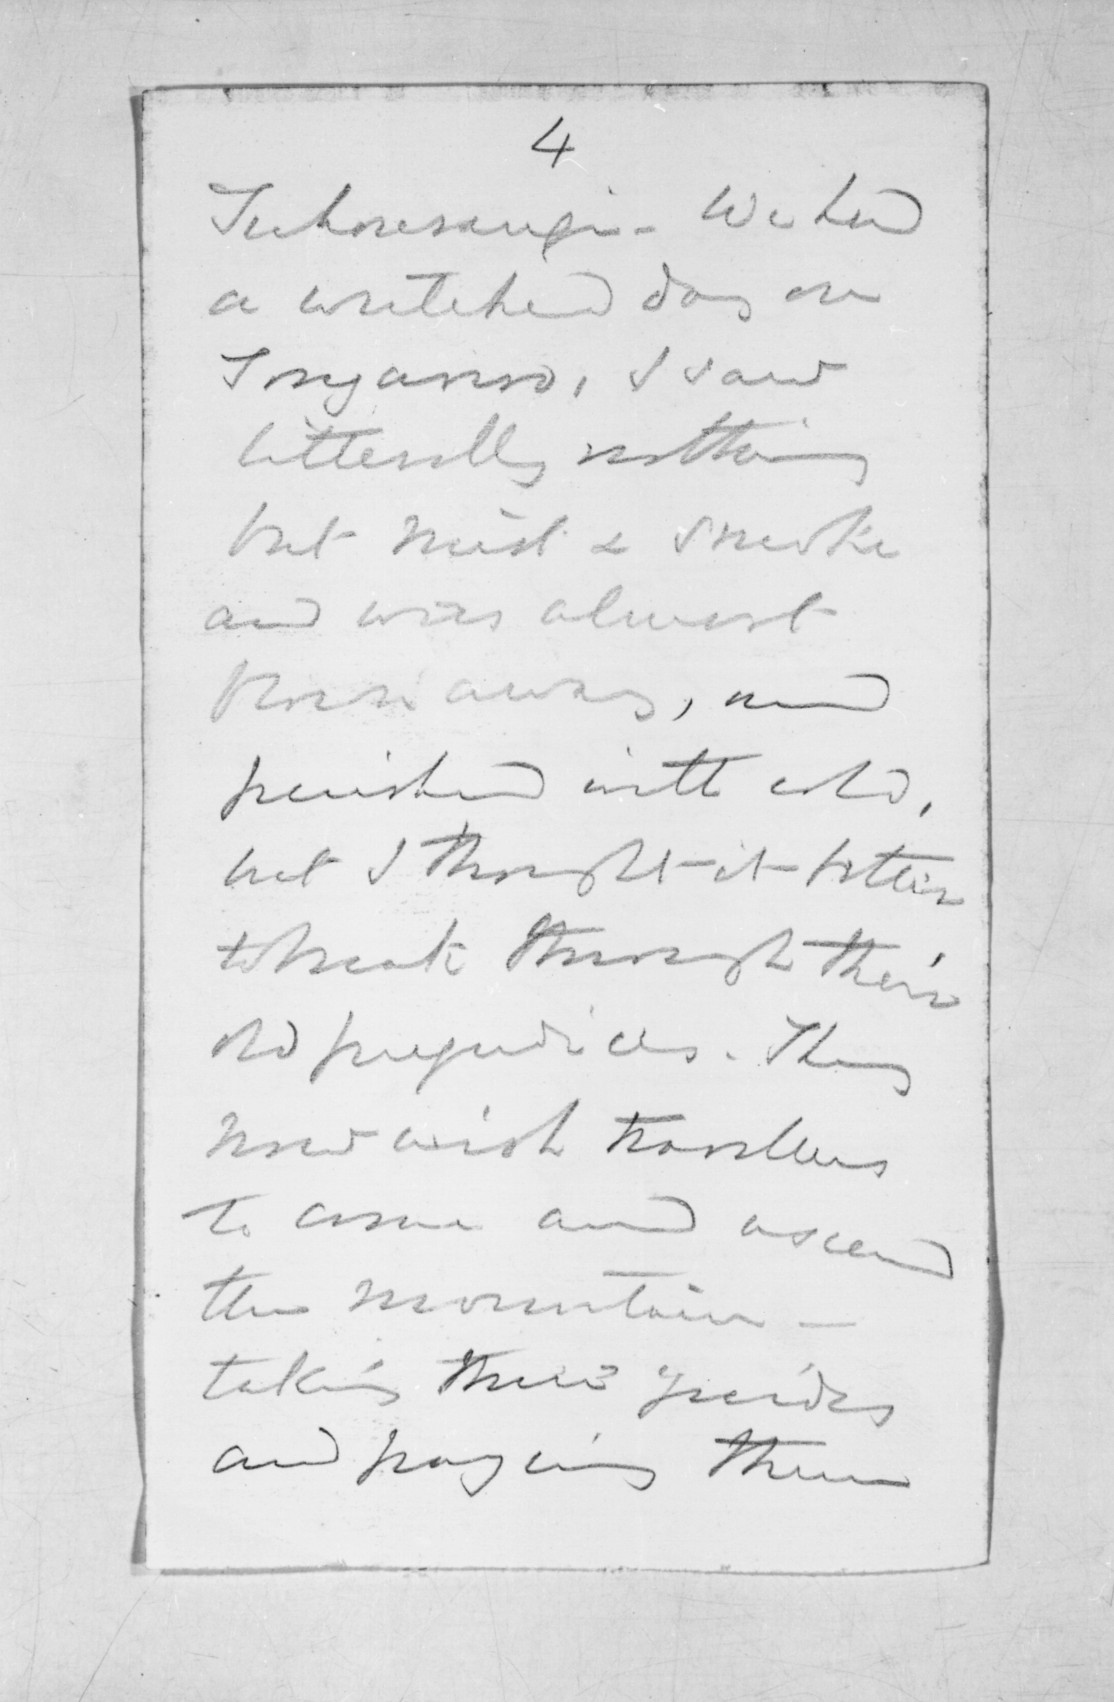 4
We had
a wretched day on
Tongariro, I saw
litterally nothing
but mist & smoke
and was almost
frozen away, and
perished with cold,
but I thought it better
to break through their
old prejudices. They
now wish travellers
to come and ascend
the mountain —
taking their guides
and paying them